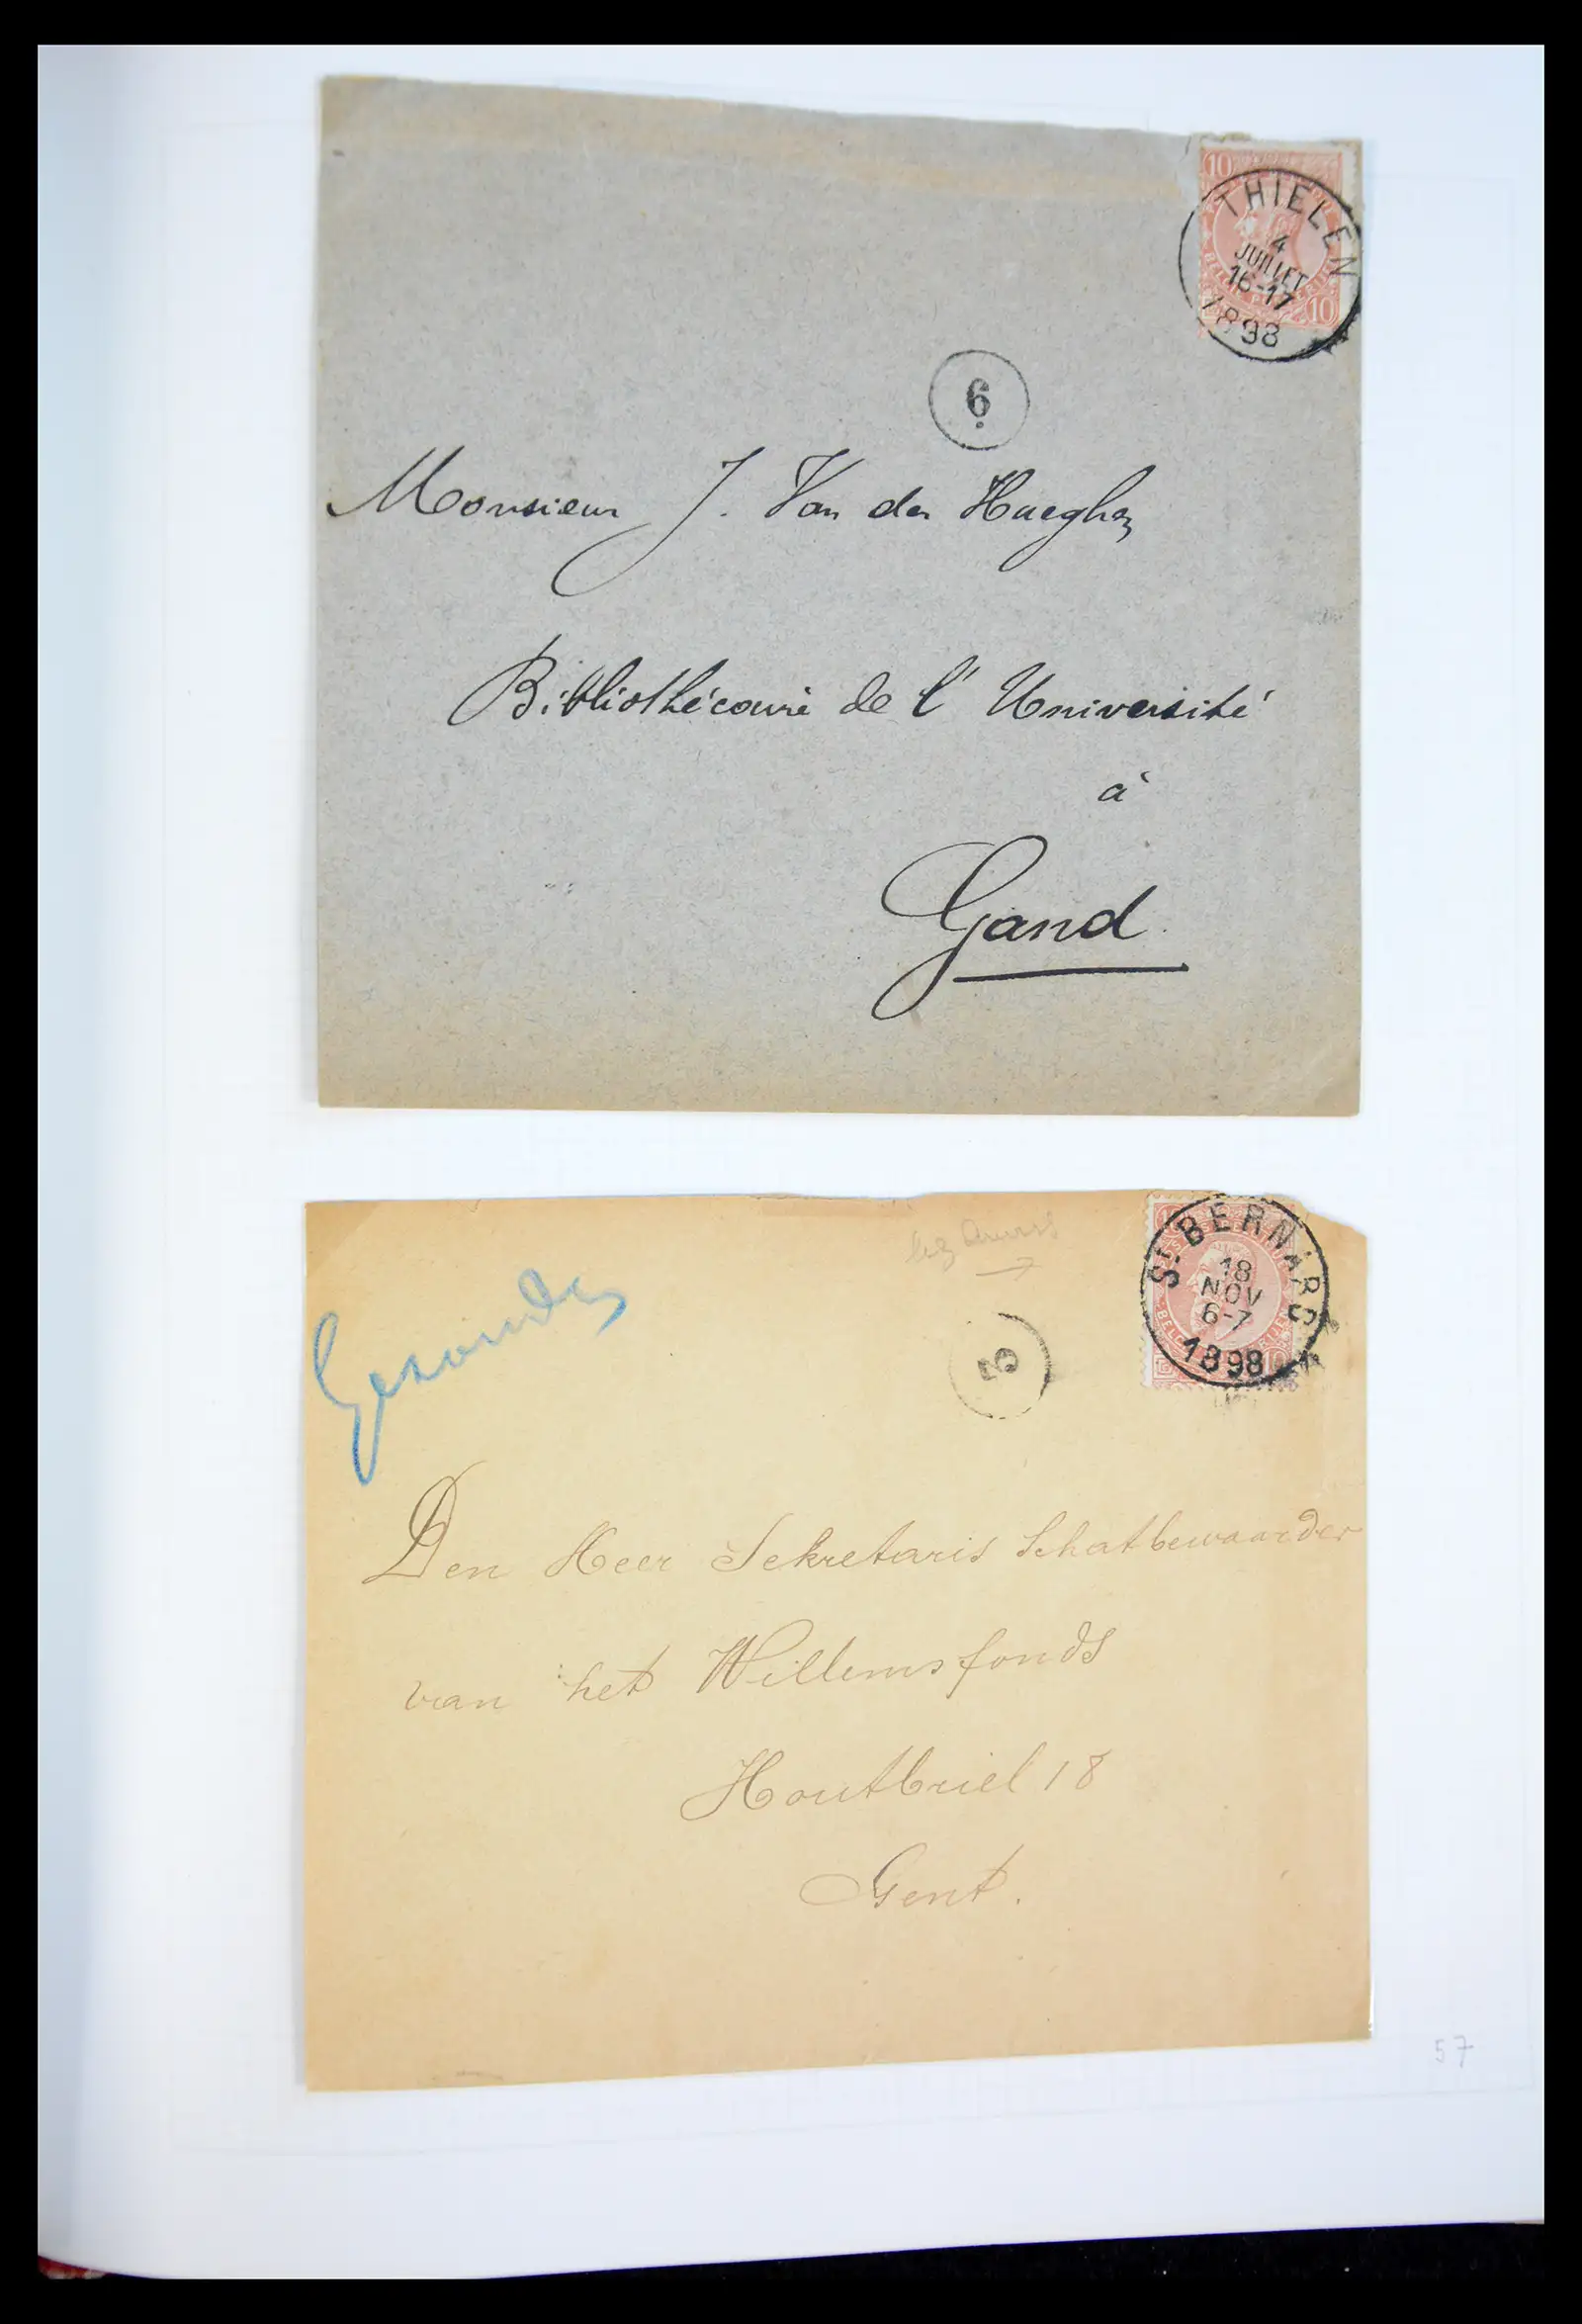 10
THIELEN
4
JUILLET
16-17
1898
10
6
Monsieur J. Van der Haeghen
Bibliothécaire de l'Université
à
Gand
ST BERNARD
18
NOV
6-7
1898
3
Den Heer Sekretaris Schatbewaarder
van het Willemsfonds
Houtbriel 18
Gent.
57